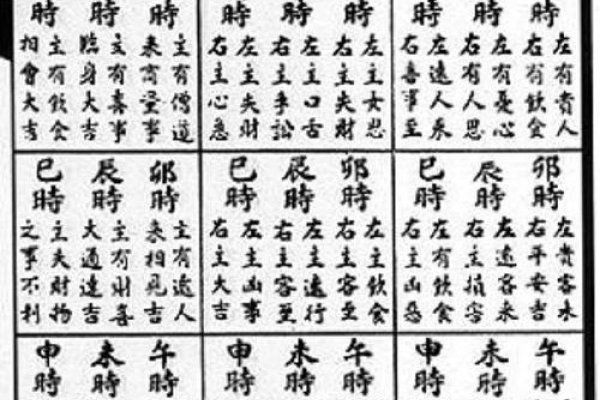 時
左有貴人
右有飲食
時
左有憂心
右有人思
時
左遠人來
右喜事至
時
左主女思
右主失財
時
左主口舌
右主爭訟
時
左主失財
右主心急
時
主有僧道
來商量事
時
主有喜事
臨身大吉
時
主有飲食
相會大吉
卯時
左貴客來
右平安吉
辰時
左遠客來
右主損害
巳時
左有飲食
右主凶惡
卯時
左主飲食
右主客至
辰時
左主遠行
右主客至
巳時
左主凶事
右主大吉
卯時
主有遠人
來相見吉
辰時
主有財喜
大通達吉
巳時
主失財物
之事不利
午時
未時
申時
午時
未時
申時
午時
未時
申時